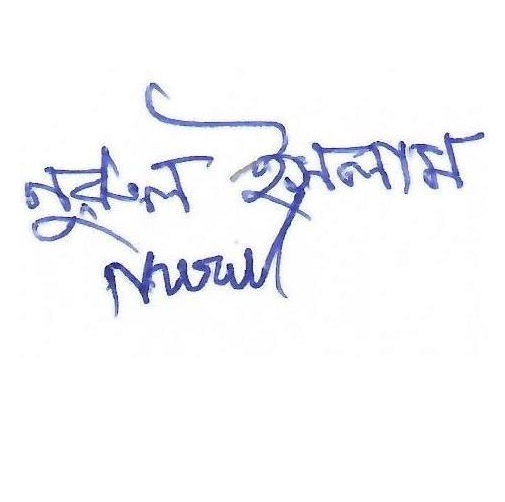 নুরুল ইসলাম
Nurul